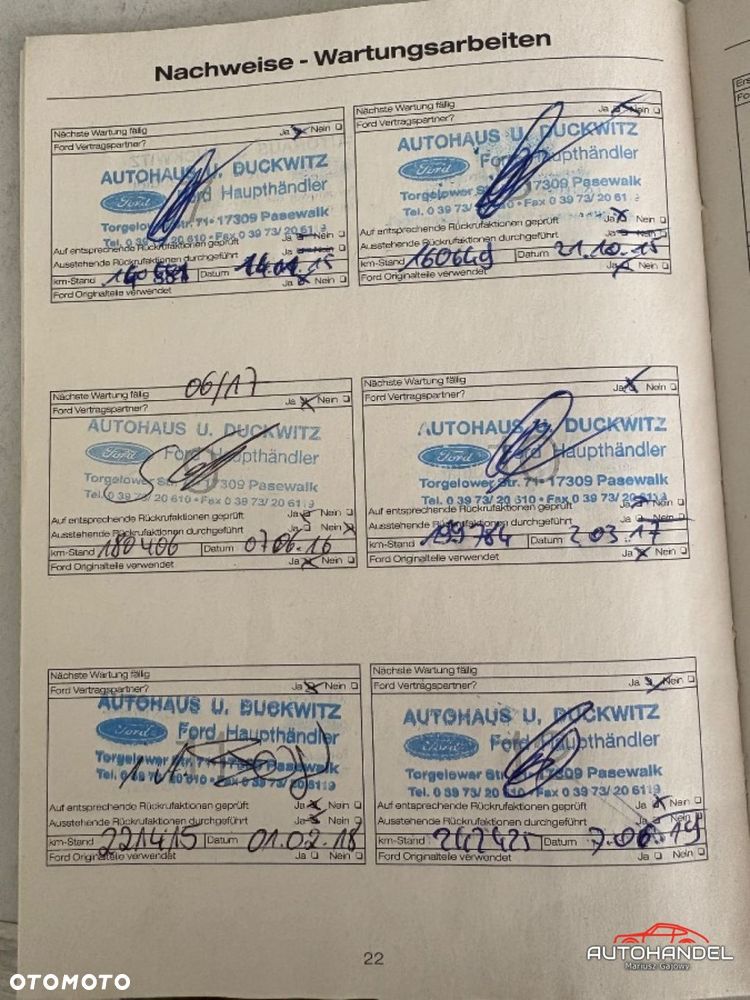 Nachweise - Wartungsarbeiten
Nächste Wartung fällig
Ford Vertragspartner? Ja Nein
AUTOHAUS U. DUCKWITZ
Ford Ford Haupthändler
Torgelower Str. 71 • 17309 Pasewalk
Tel. 0 39 73/ 20 610 • Fax 0 39 73/ 20 61 9
Auf entsprechende Rückrufaktionen geprüft Ja Nein
Ausstehende Rückrufaktionen durchgeführt Ja Nein
km-Stand Datum 14.01.15
Ford Originalteile verwendet Ja Nein
Nächste Wartung fällig
Ford Vertragspartner? Ja Nein
AUTOHAUS U. DUCKWITZ
Ford Ford Haupthändler
Torgelower Str. 71 • 17309 Pasewalk
Tel. 0 39 73/ 20 610 • Fax 0 39 73/ 20 61 9
Auf entsprechende Rückrufaktionen geprüft Ja Nein
Ausstehende Rückrufaktionen durchgeführt Ja Nein
km-Stand 160649 Datum 21.10.15
Ford Originalteile verwendet Ja Nein
Nächste Wartung fällig 06/17
Ford Vertragspartner? Ja Nein
AUTOHAUS U. DUCKWITZ
Ford Ford Haupthändler
Torgelower Str. 71 • 17309 Pasewalk
Tel. 0 39 73/ 20 610 • Fax 0 39 73/ 20 61 9
Auf entsprechende Rückrufaktionen geprüft Ja Nein
Ausstehende Rückrufaktionen durchgeführt Ja Nein
km-Stand 180406 Datum 07.06.16
Ford Originalteile verwendet Ja Nein
Nächste Wartung fällig
Ford Vertragspartner? Ja Nein
AUTOHAUS U. DUCKWITZ
Ford Ford Haupthändler
Torgelower Str. 71 • 17309 Pasewalk
Tel. 0 39 73/ 20 610 • Fax 0 39 73/ 20 61 9
Auf entsprechende Rückrufaktionen geprüft Ja Nein
Ausstehende Rückrufaktionen durchgeführt Ja Nein
km-Stand 199764 Datum 2.03.17
Ford Originalteile verwendet Ja Nein
Nächste Wartung fällig
Ford Vertragspartner? Ja Nein
AUTOHAUS U. DUCKWITZ
Ford Ford Haupthändler
Torgelower Str. 71 • 17309 Pasewalk
Tel. 0 39 73/ 20 610 • Fax 0 39 73/ 20 61 9
Auf entsprechende Rückrufaktionen geprüft Ja Nein
Ausstehende Rückrufaktionen durchgeführt Ja Nein
km-Stand 221415 Datum 01.02.18
Ford Originalteile verwendet Ja Nein
Nächste Wartung fällig
Ford Vertragspartner? Ja Nein
AUTOHAUS U. DUCKWITZ
Ford Ford Haupthändler
Torgelower Str. 71 • 17309 Pasewalk
Tel. 0 39 73/ 20 610 • Fax 0 39 73/ 20 61 9
Auf entsprechende Rückrufaktionen geprüft Ja Nein
Ausstehende Rückrufaktionen durchgeführt Ja Nein
km-Stand 242425 Datum 7.06.19
Ford Originalteile verwendet Ja Nein
22
AUTOHANDEL
Mariusz Gajowy
OTOMOTO